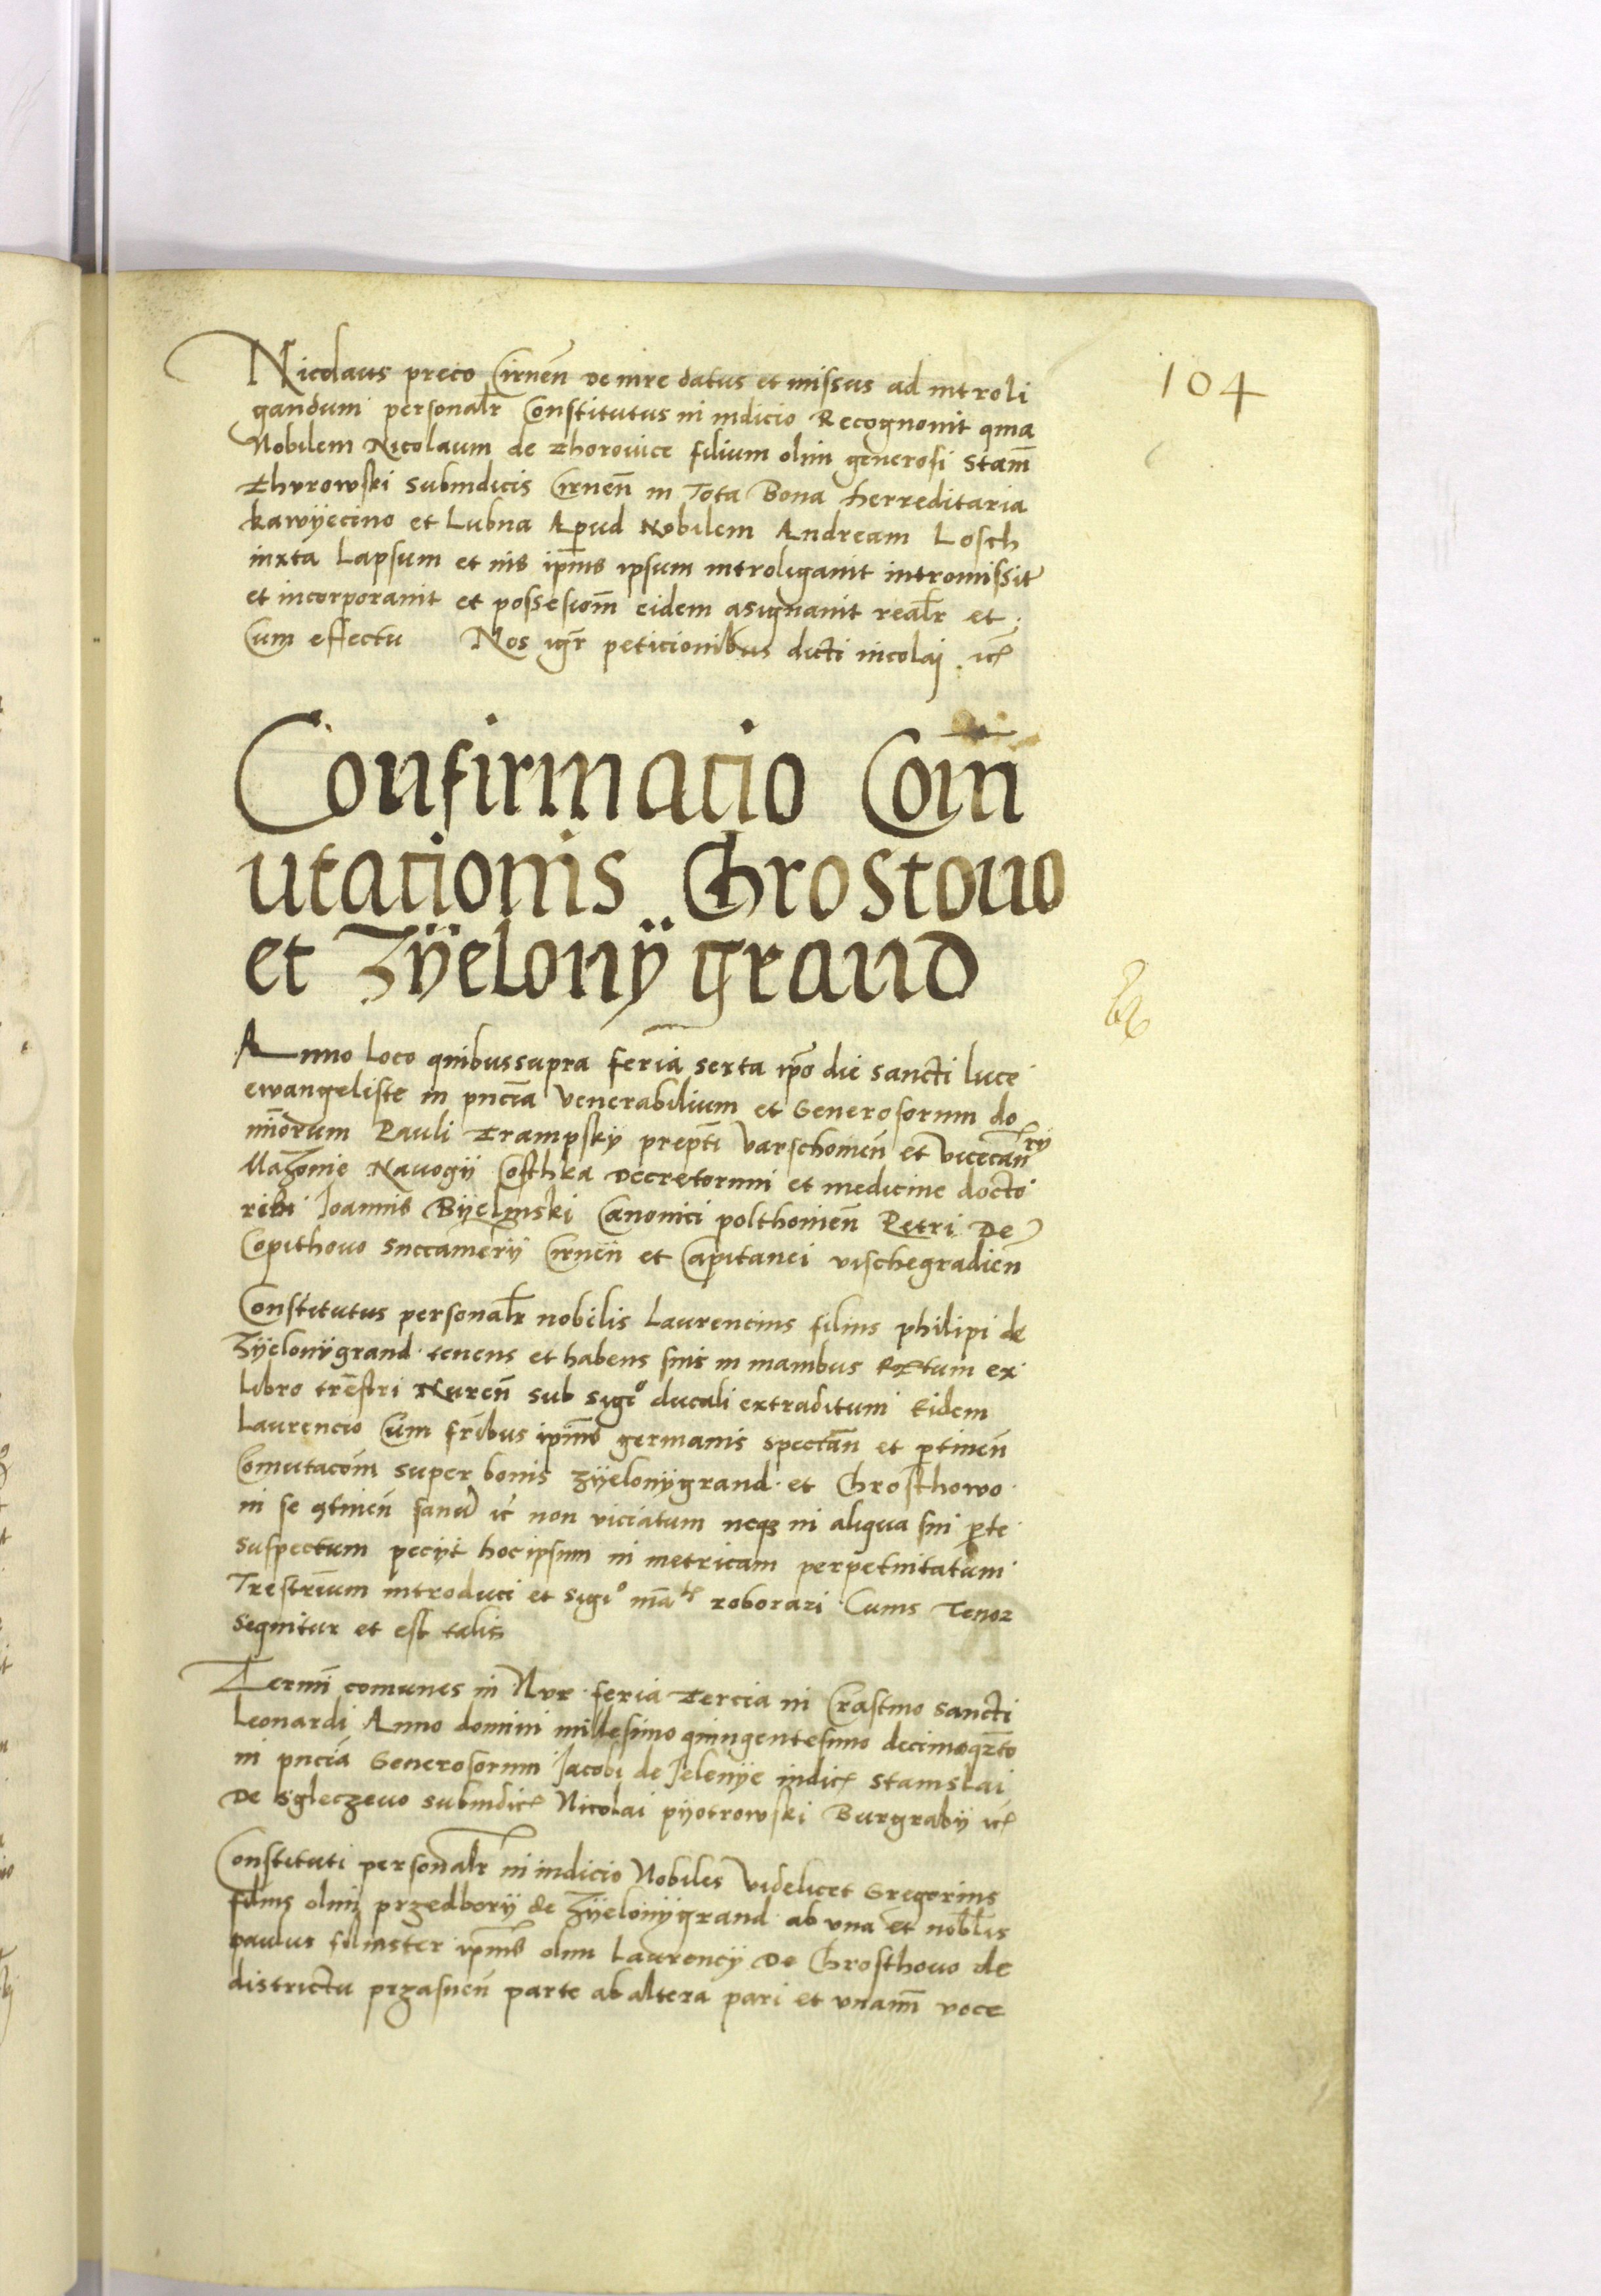 104
Nicolaus preco Cirnen̄ de iure datus et missus ad introli
gandum personalr̄ Constitutus in iudicio Recognouit qma
Nobilem Nicolaum de Zhorouice filium olim generosi Stam̄
Zhvrowski Subiudicis Cirnen̄ in Tota Bona herreditaria
kawÿecino et Lubna Apud Nobilem Andream Losch
iuxta Lapsum et ius ip̄ius ipsum introligauit intromissit
et incorporauit et possesiom̄ eidem asignauit realr̄ et
Cum effectu Nos igr̄ peticionibus dicti nicolai
Confirmacio Com̄
utationis Grostouo
et Zÿelonÿ grand
Anno Loco quibussupra feria sexta ip̄o die Sancti luce
ewangeliste in pn̄cia Venerabilium et Generosorum do
min̄orum Pauli Zrampskÿ prept̄i Varschouien̄ et Vicecan̄rÿ
Mazouie Nauogÿ Costhka Decretorum et medicine docto
Joannis Bÿelinski Canonici polthouien̄ Petri De
Copithouo Succamerÿ Cirnen̄ et Capitanei vischegradien̄
Constitutus personalr̄ nobilis Laurencius filius philipi de
Zÿelonÿgrand tenens et habens suis in manibus Rxtum ex
Libro tr̄estri Nuren̄ sub sigi° ducali extraditum Eidem
Laurencio Cum fr̄ibus ip̄ius germanis spectan̄ et ptinen̄
Comutacom̄ super bonis Zÿelonÿgrand et Grosthowo
in se 9tinen̄ sanū non viciatum neqз in aliqua sui pte
suspectum peciÿt hoc ipsum in metricam perpetuitatum
Trestrium introduci et sigi° roborari Cuius Tenor
sequitur et est talis
Termi comunes in Nvr feria Tercia in Crastino Sancti
Leonardi Anno domini millesimo quingentesimo decimoqrto
in pn̄cia Generosorum Jacobi de Jelenÿe iudic̄ Stanislai
De Sgleczeuo subiudic̄ Nicolai pÿotrowski Burgrabÿ
Constituti personalr̄ in iudicio Nobiles Videlicet Gregorius
filius olim przedborÿ de Zÿelonÿgrand ab vna et nobl̄is
paulus filiaster ip̄ius olim Laurencÿ De Grosthouo de
districtu przasnen̄ parte ab altera pari et vnanim̄ voce